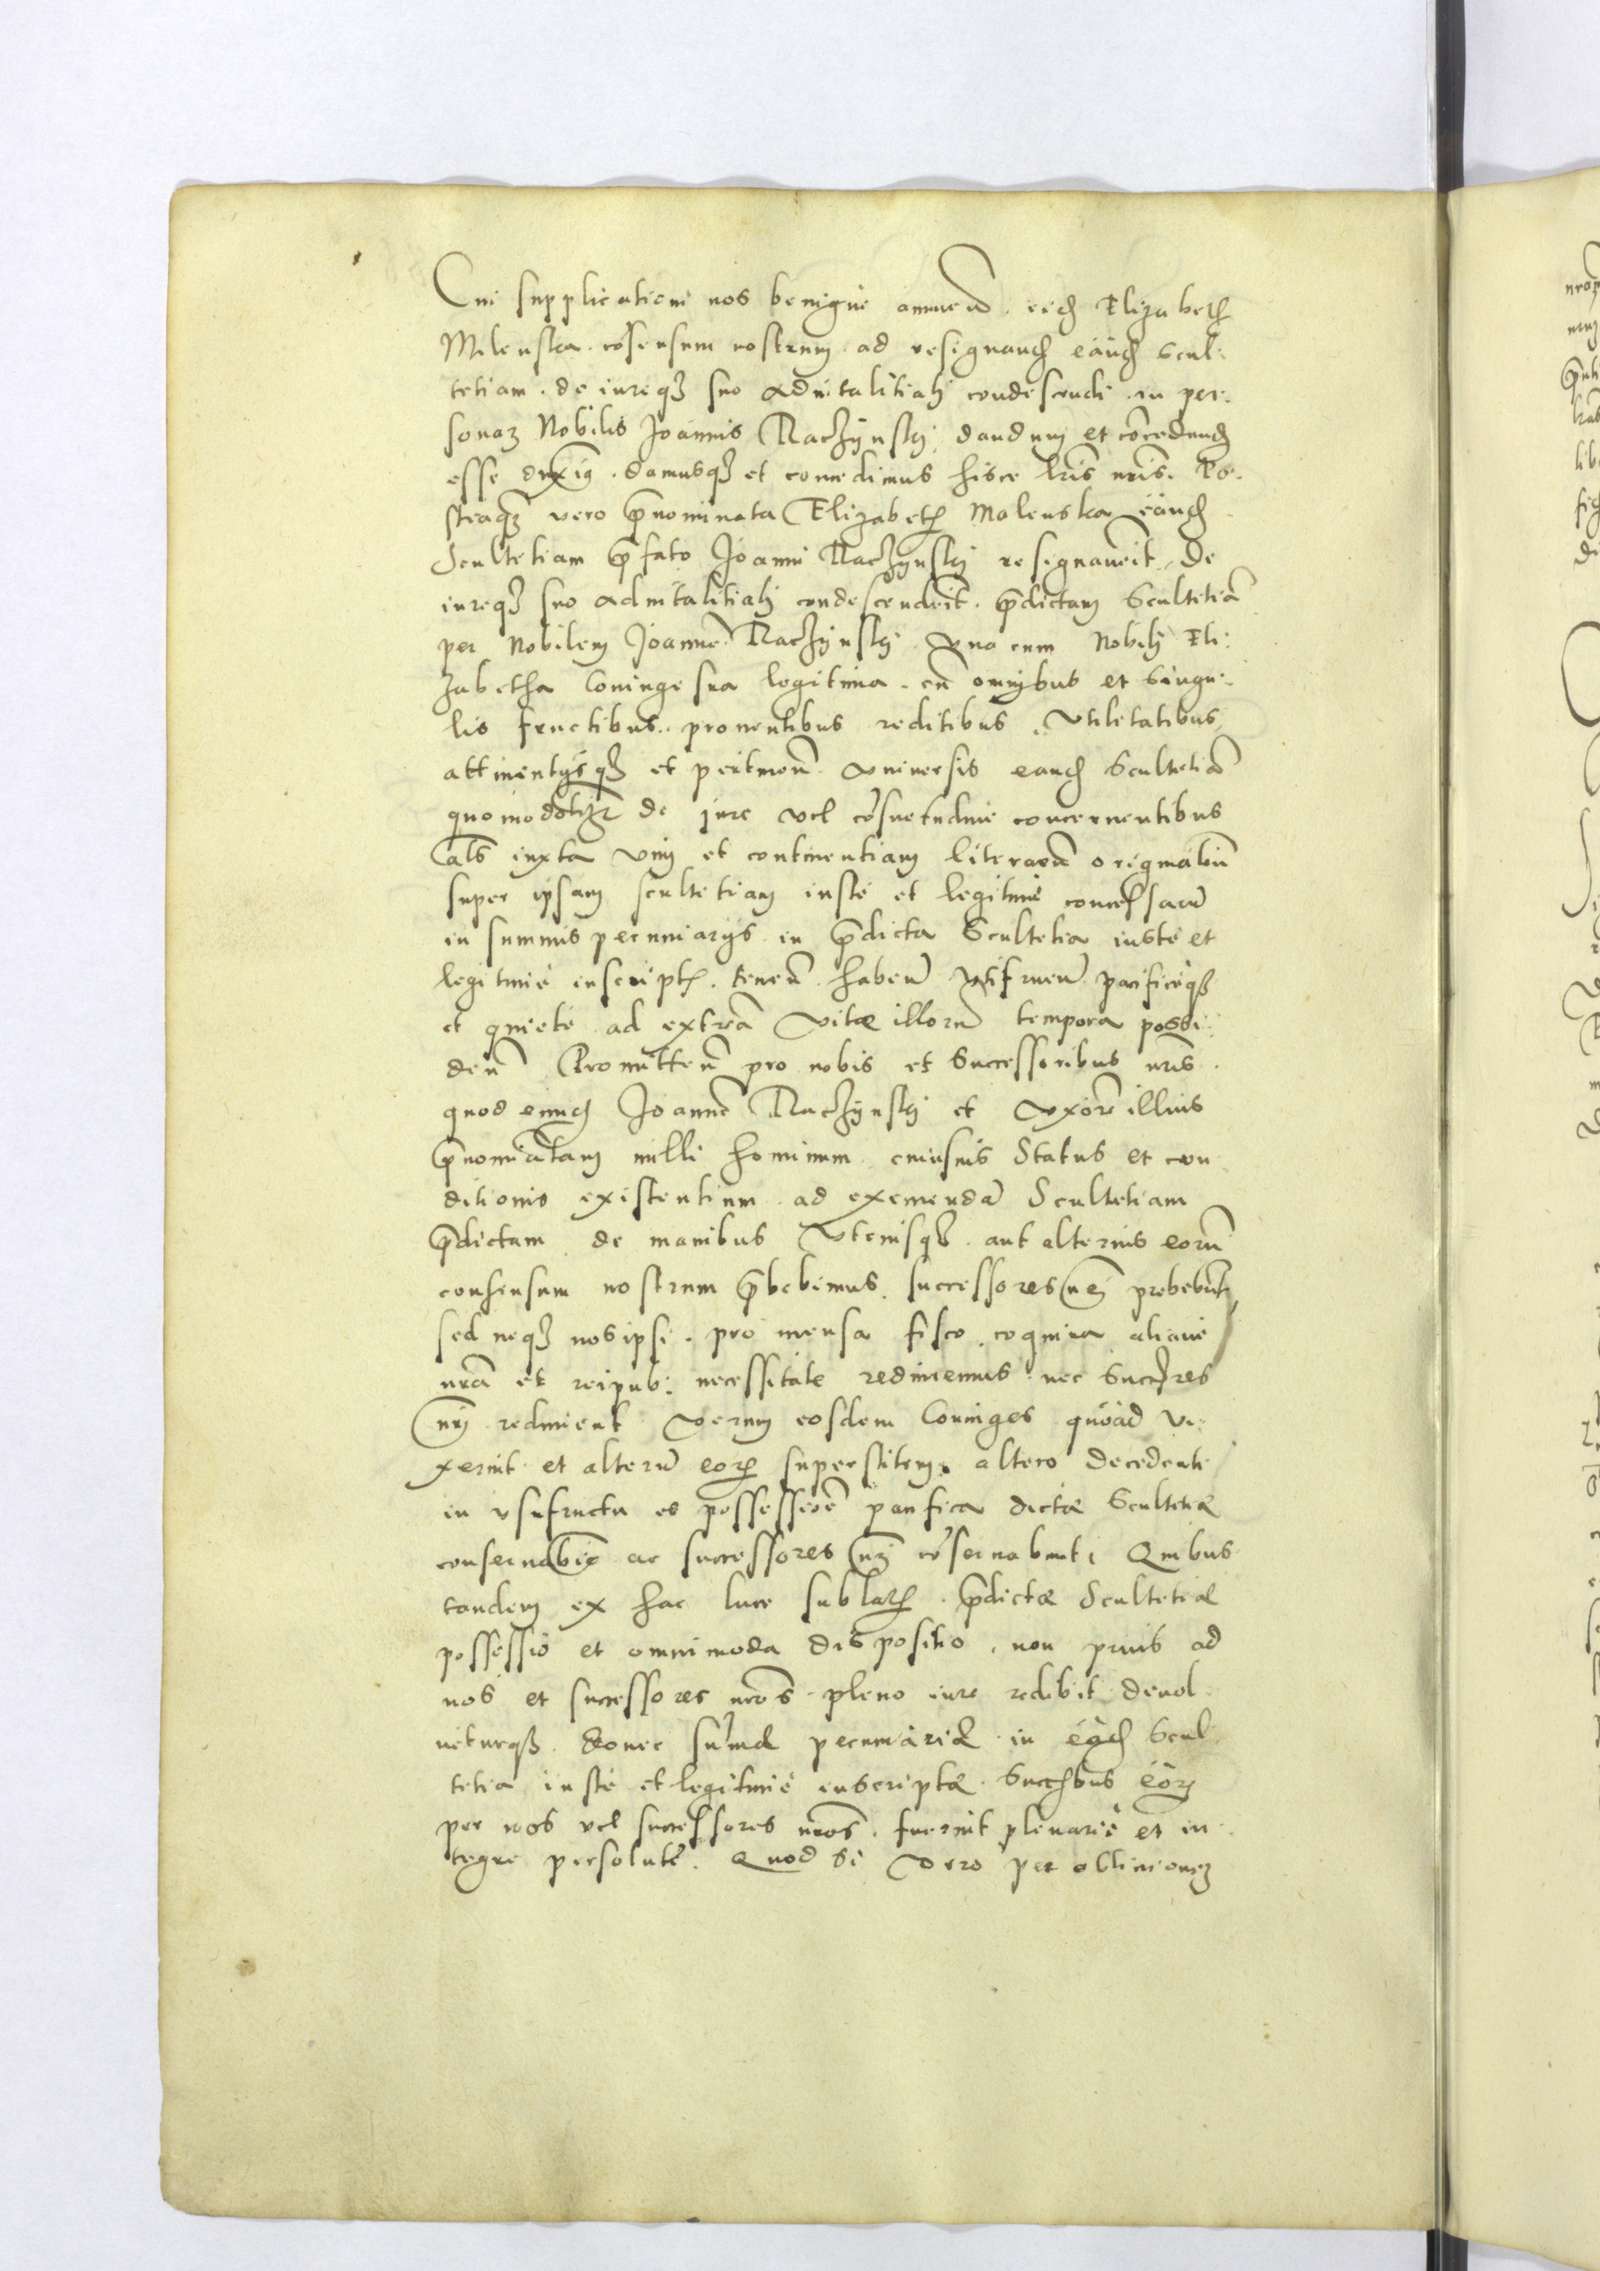 Cui supplicationi nos benignè annuen̄. eid Elizabeth
Milenska. cōsensum nostrum ad resignand eānd Scul:
tetiam. de iureq3 suo aduitalitiali condescendi in per:
sonam Nobilis Joannis Raczÿnski dandum et cōcedend
esse duxim9. damusq3 et concedimus hisce lr̄is nr̄is. Po:
steaq̄3 vero p̄nominata Elizabeth Malenska eānd
Scultetiam p̄fato Joanni Raczÿnski resignauerit. De
iureq3 suo aduitalitiali condescenderit. p̄dictam Scultetiā
per Nobilem Joannē Raczÿnski vna cum Nobili Eli:
zabetha Coniuge sua legitima. cū omnibus et singu:
lis fructibus. prouentibus reditibus. Vtilitatibus,
attinentijsq3 et pertinen̄. vniuersis eand Scultetiā
quomodolz de jure vel cōsuetudine concernentibus
als iuxta vim et continentiam literarū originaliū
super ipsam scultetiam iustè et legitimè concessarū
in summis pecuniarijs in p̄dicta Scultetia iustè et
legitimè inscript. tenen̄. haben̄. vtifruen̄. pacificeq3
et quietè ad extrēa vitæ illorū tempora possi:
den̄. Promitten̄ pro nobis et Successoribus nr̄is.
quod eund Joannē Raczÿnski et vxorē illius
p̄nomīatam nulli hominum cuiusuis Status et con
ditionis existentium ad exemendā Scultetiam
p̄dictam de manibus Vtriusq3 aut alterius eorū
consensum nostrum p̄bebimus. successores nr̄i prebebūt,
sed neq3 nosipsi. pro mensa fisco. coquina aliaue
nrā et reipub: necessitate redimemus nec Succres
nr̄i redimient verum eosdem Coniuges quoad vi:
xerint et alterū eor superstitem, altero decedente
in vsufructu et possessiōe pacifica dictæ Scultetiæ
conseruabim9 ac successores nr̄i cōseruabunt. Quibus
tandem ex hac luce sublat. p̄dictæ Scultetiæ
possessio et omnimoda dispositio. non prius ad
nos et successores nr̄os pleno iure redibit deuol
ueturq3. donec sum̄æ pecuniariæ in eād Scul
tetia iustè et legitimè inscriptæ. Succbus eor
per nos vel successores nr̄os. fuerint plenariè et in
tegrè persolutæ. Quod si vero per obliuionem